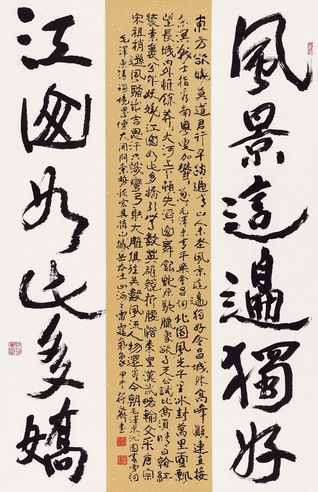 風景這邊獨好
東方欲曉莫道君行早踏遍青山人未老風景這邊獨好會昌城外高峰顛連直接
東溟戰士指看南粵更加鬱蔥毛澤東清平樂會昌詞北國風光千里冰封萬里雪飄
望長城內外惟餘莽莽大河上下頓失滔滔山舞銀蛇原馳臘象欲與天公試比高須晴日看紅
裝素裹分外妖嬈江山如此多嬌引無數英雄競折腰惜秦皇漢武略輸文采唐宗
宋祖稍遜風騷成吉思汗只識彎弓射大雕俱往矣數風流人物還看今朝毛澤東沁園春雪詞
毛澤東詩詞境界博大
江山如此多嬌